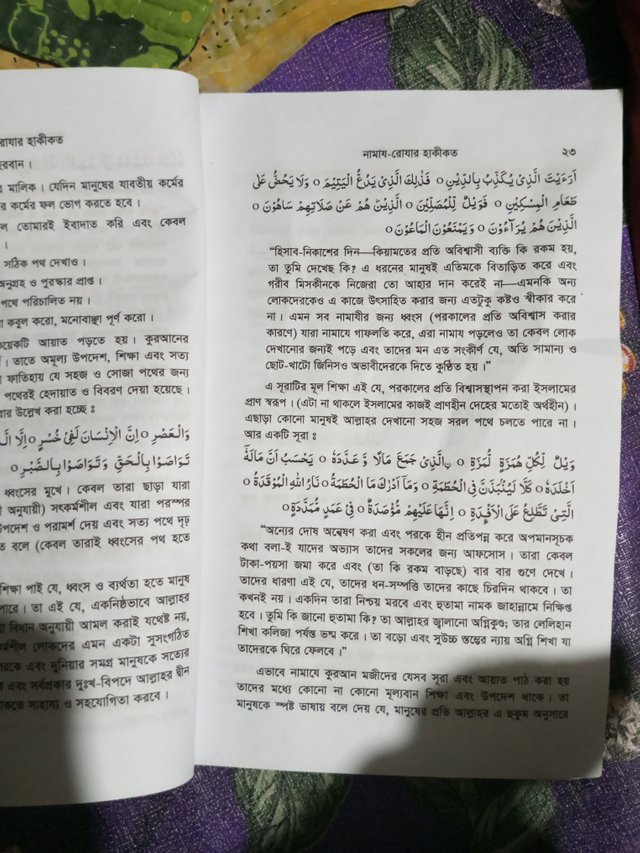 রোযার হাকীকত
হেরবান।
মালিক। যেদিন মানুষের যাবতীয় কর্মের
র কর্মের ফল ভোগ করতে হবে।
তোমারই ইবাদাত করি এবং কেবল
।
সঠিক পথ দেখাও।
অনুগ্রহ ও পুরস্কার প্রাপ্ত।
পথে পরিচালিত নয়।
কবুল করো, মনোবাঞ্ছা পূর্ণ করো।
কয়েকটি আয়াত পড়তে হয়। কুরআনের
তাতে অমূল্য উপদেশ, শিক্ষা এবং সত্য
ফাতিহায় যে সহজ ও সোজা পথের জন্য
পথেরই হেদায়াত ও বিবরণ দেয়া হয়েছে।
র উল্লেখ করা হচ্ছে ঃ
وَالْعَصْرِ ○ اِنَّ الْاِنْسَانَ لَفِيْ خُسْرٍ ○ اِلَّا
تَوَاصَوْا بِالْحَقِّ ○ وَتَوَاصَوْا بِالصَّبْرِ ○
ধ্বংসের মুখে। কেবল তারা ছাড়া যারা
অনুযায়ী) সৎকর্মশীল এবং যারা পরস্পর
উপদেশ ও পরামর্শ দেয় এবং সত্য পথে দৃঢ়
বলে (কেবল তারাই ধ্বংসের পথ হতে
শিক্ষা পাই যে, ধ্বংস ও ব্যর্থতা হতে মানুষ
পারে। তা এই যে, একনিষ্ঠভাবে আল্লাহর
বিধান অনুযায়ী আমল করাই যথেষ্ট নয়,
শীল লোকদের এমন একটা সুসংগঠিত
রকে এবং দুনিয়ার সমগ্র মানুষকে সত্যের
এবং সর্বপ্রকার দুঃখ-বিপদে আল্লাহর দ্বীন
কতে সাহায্য ও সহযোগিতা করবে।
নামায-রোযার হাকীকত ২৩
اَرَءَيْتَ الَّذِيْ يُكَذِّبُ بِالدِّيْنِ ○ فَذٰلِكَ الَّذِيْ يَدُعُّ الْيَتِيْمَ ○ وَلَا يَحُضُّ عَلٰى
طَعَامِ الْمِسْكِيْنِ ○ فَوَيْلٌ لِّلْمُصَلِّيْنَ ○ الَّذِيْنَ هُمْ عَنْ صَلَاتِهِمْ سَاهُوْنَ ○
الَّذِيْنَ هُمْ يُرَآءُوْنَ ○ وَيَمْنَعُوْنَ الْمَاعُوْنَ ○
“হিসাব-নিকাশের দিন—কিয়ামতের প্রতি অবিশ্বাসী ব্যক্তি কি রকম হয়,
তা তুমি দেখেছ কি? এ ধরনের মানুষই এতিমকে বিতাড়িত করে এবং
গরীব মিসকীনকে নিজেরা তো আহার দান করেই না—এমনকি অন্য
লোকদেরকেও এ কাজে উৎসাহিত করার জন্য এতটুকু কষ্টও স্বীকার করে
না। এমন সব নামাযীর জন্য ধ্বংস (পরকালের প্রতি অবিশ্বাস করার
কারণে) যারা নামাযে গাফলতি করে, এরা নামায পড়লেও তা কেবল লোক
দেখানোর জন্যই পড়ে এবং তাদের মন এত সংকীর্ণ যে, অতি সামান্য ও
ছোট-খাটো জিনিসও অভাবীদেরকে দিতে কুণ্ঠিত হয়।”
এ সূরাটির মূল শিক্ষা এই যে, পরকালের প্রতি বিশ্বাসস্থাপন করা ইসলামের
প্রাণ স্বরূপ। (এটা না থাকলে ইসলামের কাজই প্রাণহীন দেহের মতোই অর্থহীন)।
এছাড়া কোনো মানুষই আল্লাহর দেখানো সহজ সরল পথে চলতে পারে না।
আর একটি সূরা ঃ
وَيْلٌ لِّكُلِّ هُمَزَةٍ لُّمَزَةٍ ○ الَّذِيْ جَمَعَ مَالًا وَّعَدَّدَهٗ ○ يَحْسَبُ اَنَّ مَالَهٗٓ
اَخْلَدَهٗ ○ كَلَّا لَيُنْۢبَذَنَّ فِي الْحُطَمَةِ ○ وَمَآ اَدْرٰىكَ مَا الْحُطَمَةُ ○ نَارُ اللّٰهِ الْمُوْقَدَةُ ○
الَّتِيْ تَطَّلِعُ عَلَى الْاَفْـِٕدَةِ ○ اِنَّهَا عَلَيْهِمْ مُّؤْصَدَةٌ ○ فِيْ عَمَدٍ مُّمَدَّدَةٍ ○
“অন্যের দোষ অন্বেষণ করা এবং পরকে হীন প্রতিপন্ন করে অপমানসূচক
কথা বলা-ই যাদের অভ্যাস তাদের সকলের জন্য আফসোস। তারা কেবল
টাকা-পয়সা জমা করে এবং (তা কি রকম বাড়ছে) বার বার গুণে দেখে।
তাদের ধারণা এই যে, তাদের ধন-সম্পত্তি তাদের কাছে চিরদিন থাকবে। তা
কখনই নয়। একদিন তারা নিশ্চয় মরবে এবং হুতামা নামক জাহান্নামে নিক্ষিপ্ত
হবে। তুমি কি জানো হুতামা কি? তা আল্লাহর জ্বালানো অগ্নিকুণ্ড; তার লেলিহান
শিখা কলিজা পর্যন্ত ভস্ম করে। তা বড়ো এবং সুউচ্চ স্তম্ভের ন্যায় অগ্নি শিখা যা
তাদেরকে ঘিরে ফেলবে।”
এভাবে নামাযে কুরআন মজীদের যেসব সূরা এবং আয়াত পাঠ করা হয়
তাদের মধ্যে কোনো না কোনো মূল্যবান শিক্ষা এবং উপদেশ থাকে। তা
মানুষকে স্পষ্ট ভাষায় বলে দেয় যে, মানুষের প্রতি আল্লাহর এ হুকুম অনুসারে